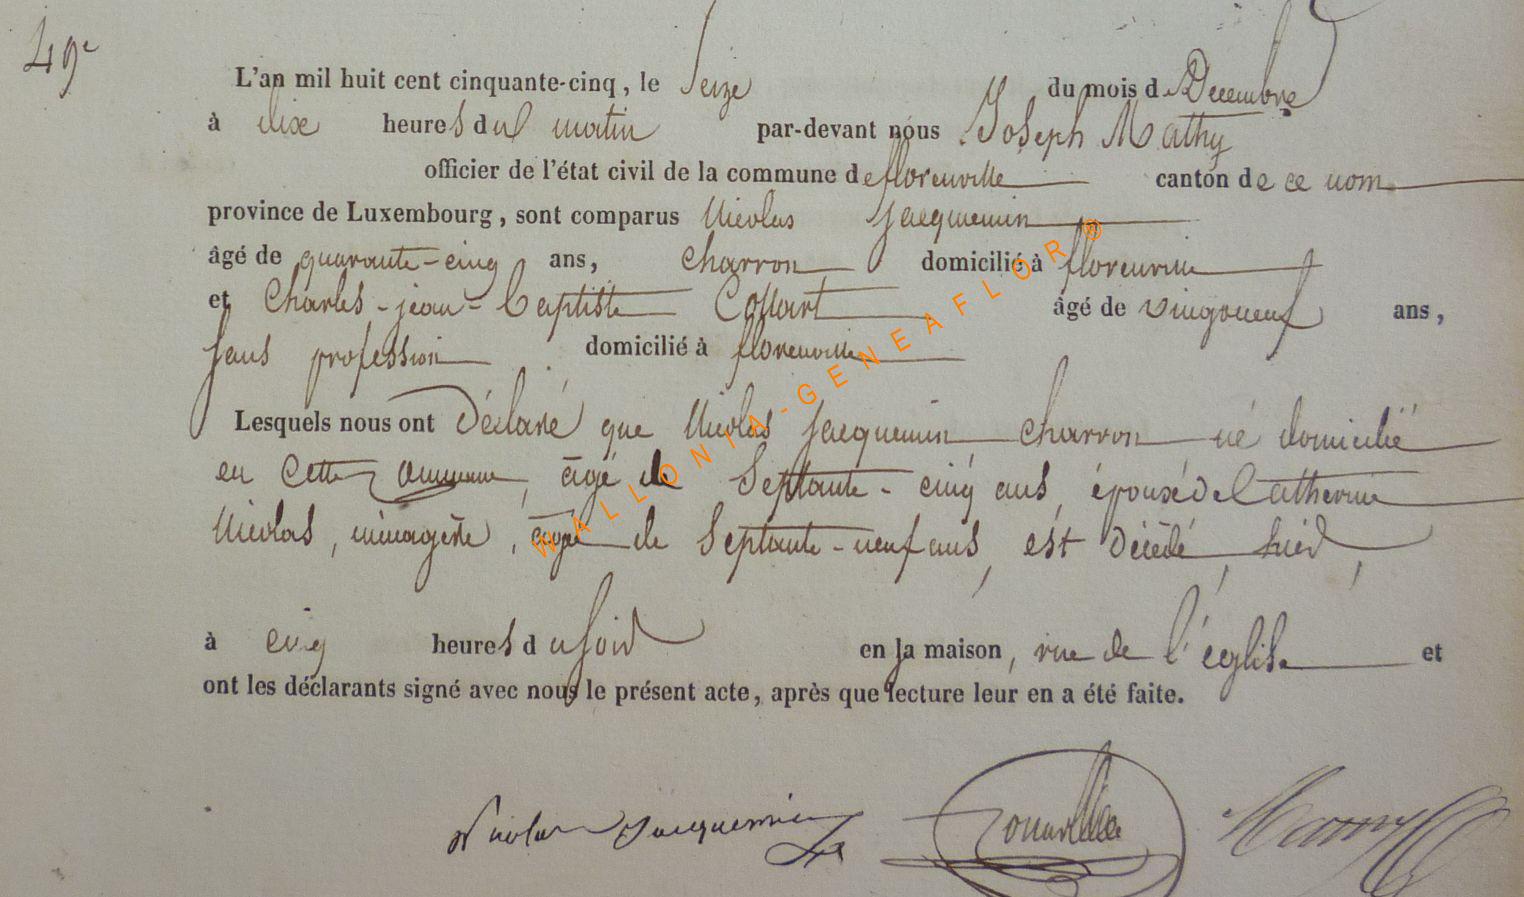 49e
L'an mil huit cent cinquante-cinq, le Seize du mois de Décembre
à dix heures du matin par-devant nous Joseph Mathy
officier de l'état civil de la commune de florenville canton de ce nom
province de Luxembourg, sont comparus Nicolas Jacquemin
âgé de quarante-cinq ans, charron domicilié à florenville
et Charles-jean-baptiste Collart âgé de vingtneuf ans,
sans profession domicilié à florenville
Lesquels nous ont Déclaré que Nicolas Jacquemin charron né domicilié
en cette commune, âgé de Septante-cinq ans, époux de Catherine
Nicolas, ménagère, âgée de Septante-neuf ans, est décédé, hier,
à cinq heures du soir en sa maison, rue de l'église et
ont les déclarants signé avec nous le présent acte, après que lecture leur en a été faite.
Nicolas Jacquemin
WALLONIA-GENEAFLOR®